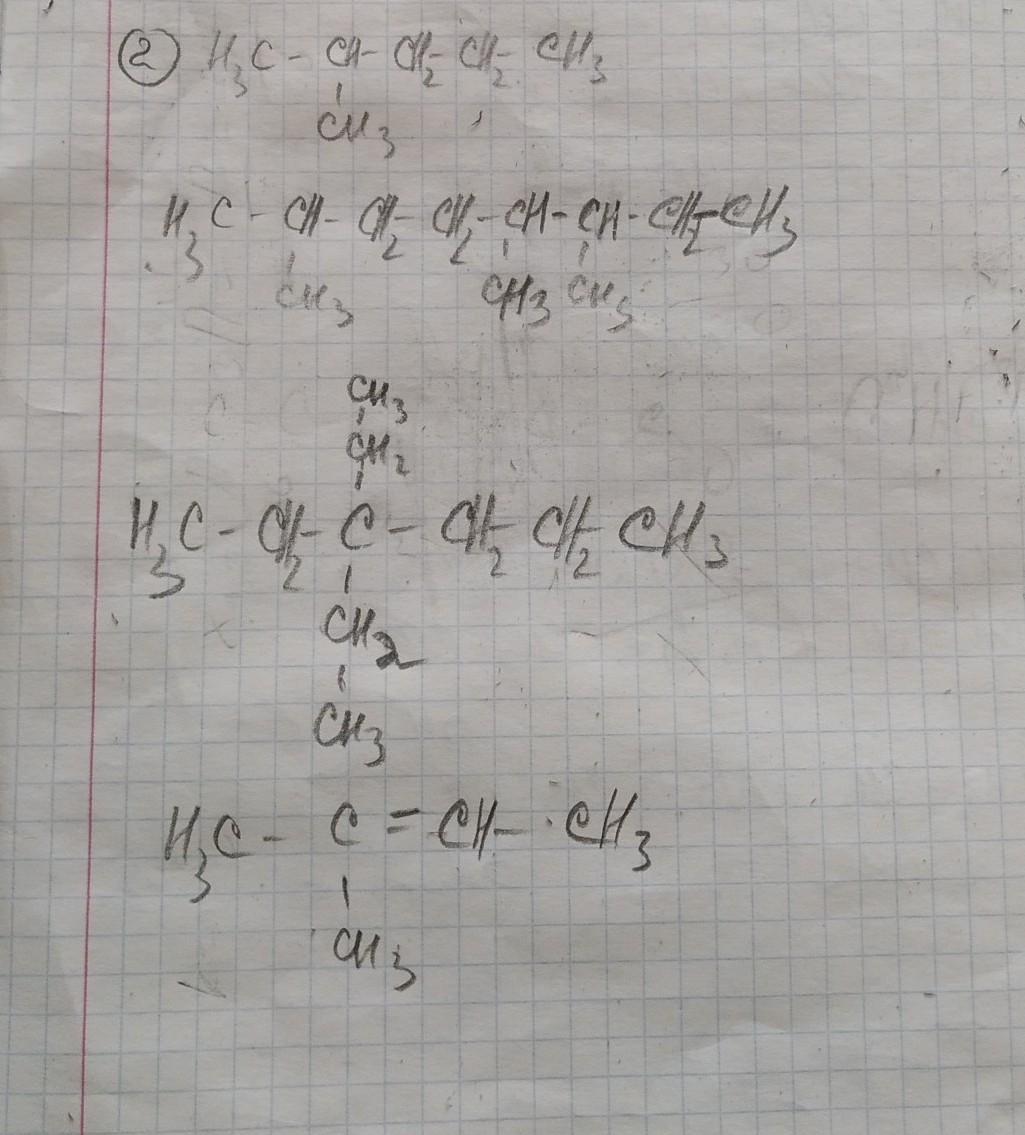 ② H₃C - CH - CH₂ - CH₂ - CH₃
CH₃
H₃C - CH - CH₂ - CH₂ - CH - CH - CH₂ - CH₃
CH₃ CH₃ CH₃
CH₃
CH₂
H₃C - CH₂ - C - CH₂ - CH₂ - CH₃
CH₂
CH₃
H₃C - C = CH - CH₃
CH₃